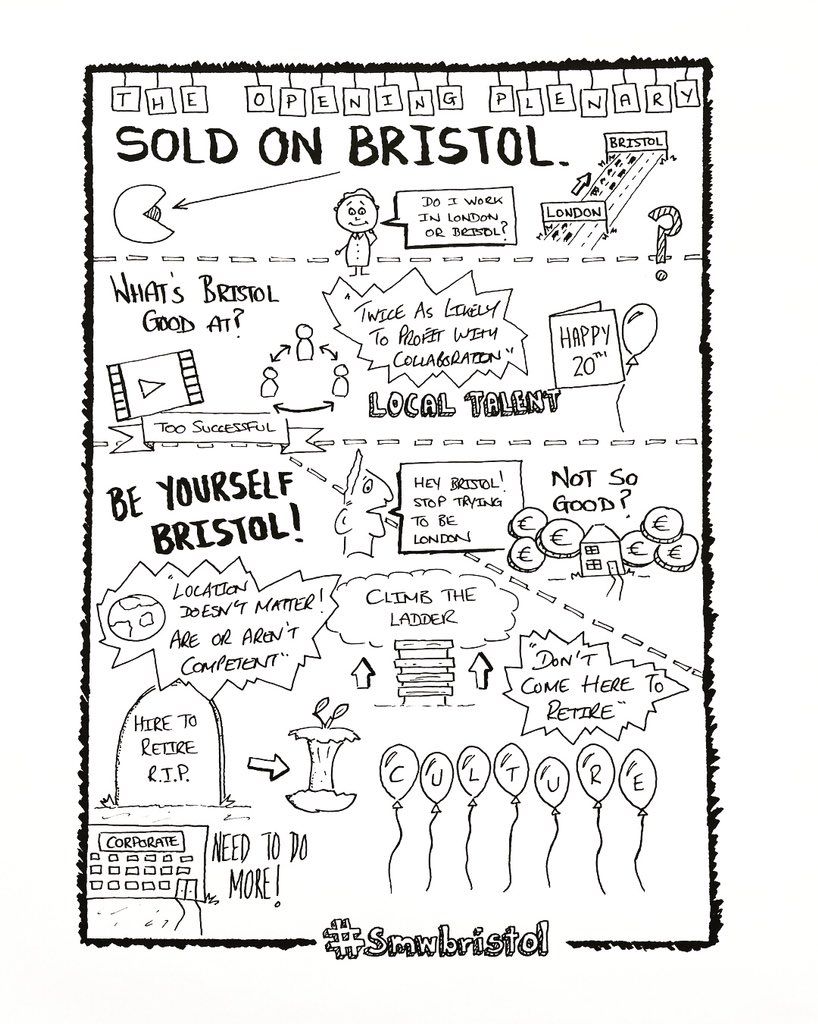 THE OPENING PLENARY
SOLD ON BRISTOL.
DO I WORK
IN LONDON
OR BRISTOL?
BRISTOL
LONDON
?
WHAT'S BRISTOL
GOOD AT?
"TWICE AS LIKELY
TO PROFIT WITH
COLLABORATION"
HAPPY
20TH
LOCAL TALENT
TOO SUCCESSFUL
BE YOURSELF
BRISTOL!
HEY BRISTOL!
STOP TRYING
TO BE
LONDON
NOT SO
GOOD?
€ € € € € €
"LOCATION
DOESN'T MATTER!
ARE OR AREN'T
COMPETENT"
CLIMB THE
LADDER
"DON'T
COME HERE TO
RETIRE"
HIRE TO
RETIRE
R.I.P.
CULTURE
CORPORATE
NEED TO DO
MORE!
#Smwbristol